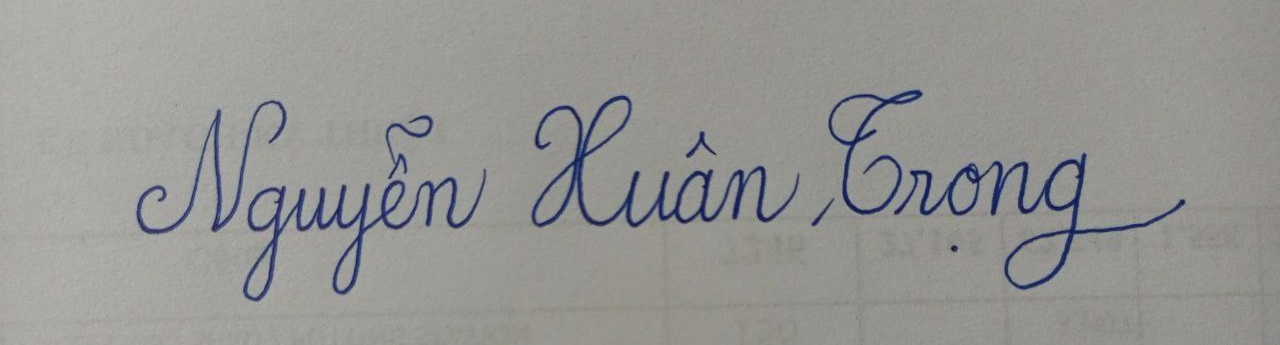 Nguyễn Xuân Trọng